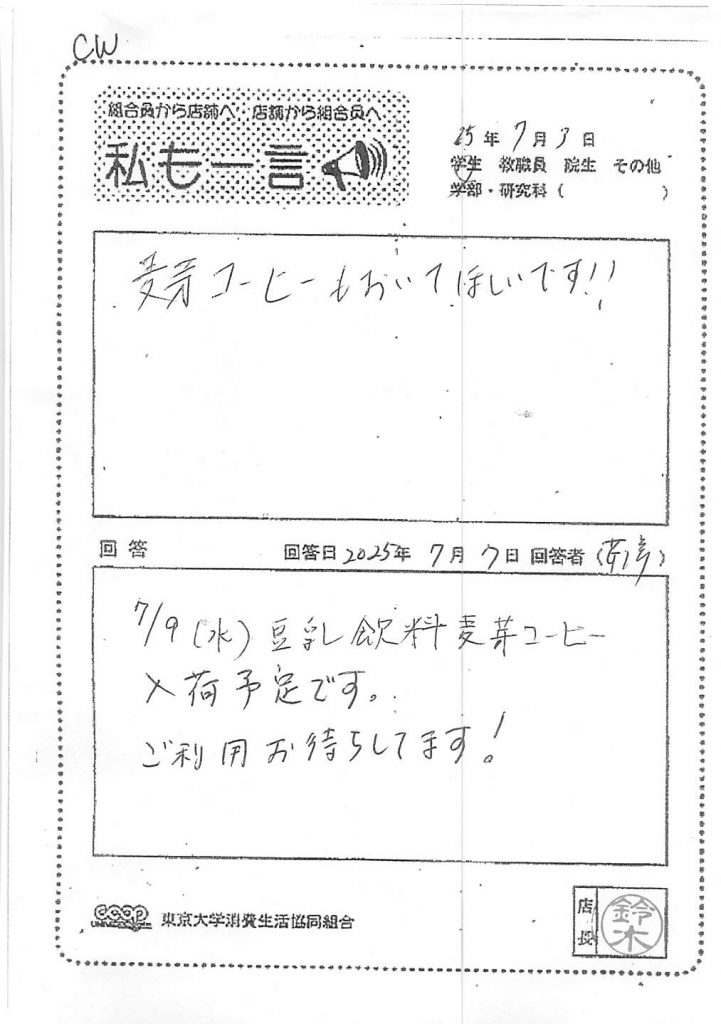 CW
組合員から店舗へ 店舗から組合員へ
私も一言
25年7月3日
学生 教職員 院生 その他
学部・研究科( )
麦芽コーヒーもおいてほしいです!!
回答 回答日2025年 7月 7日 回答者
7/9(水)豆乳飲料麦芽コーヒー
入荷予定です。
ご利用お待ちしてます!
coop 東京大学消費生活協同組合
店長 鈴木